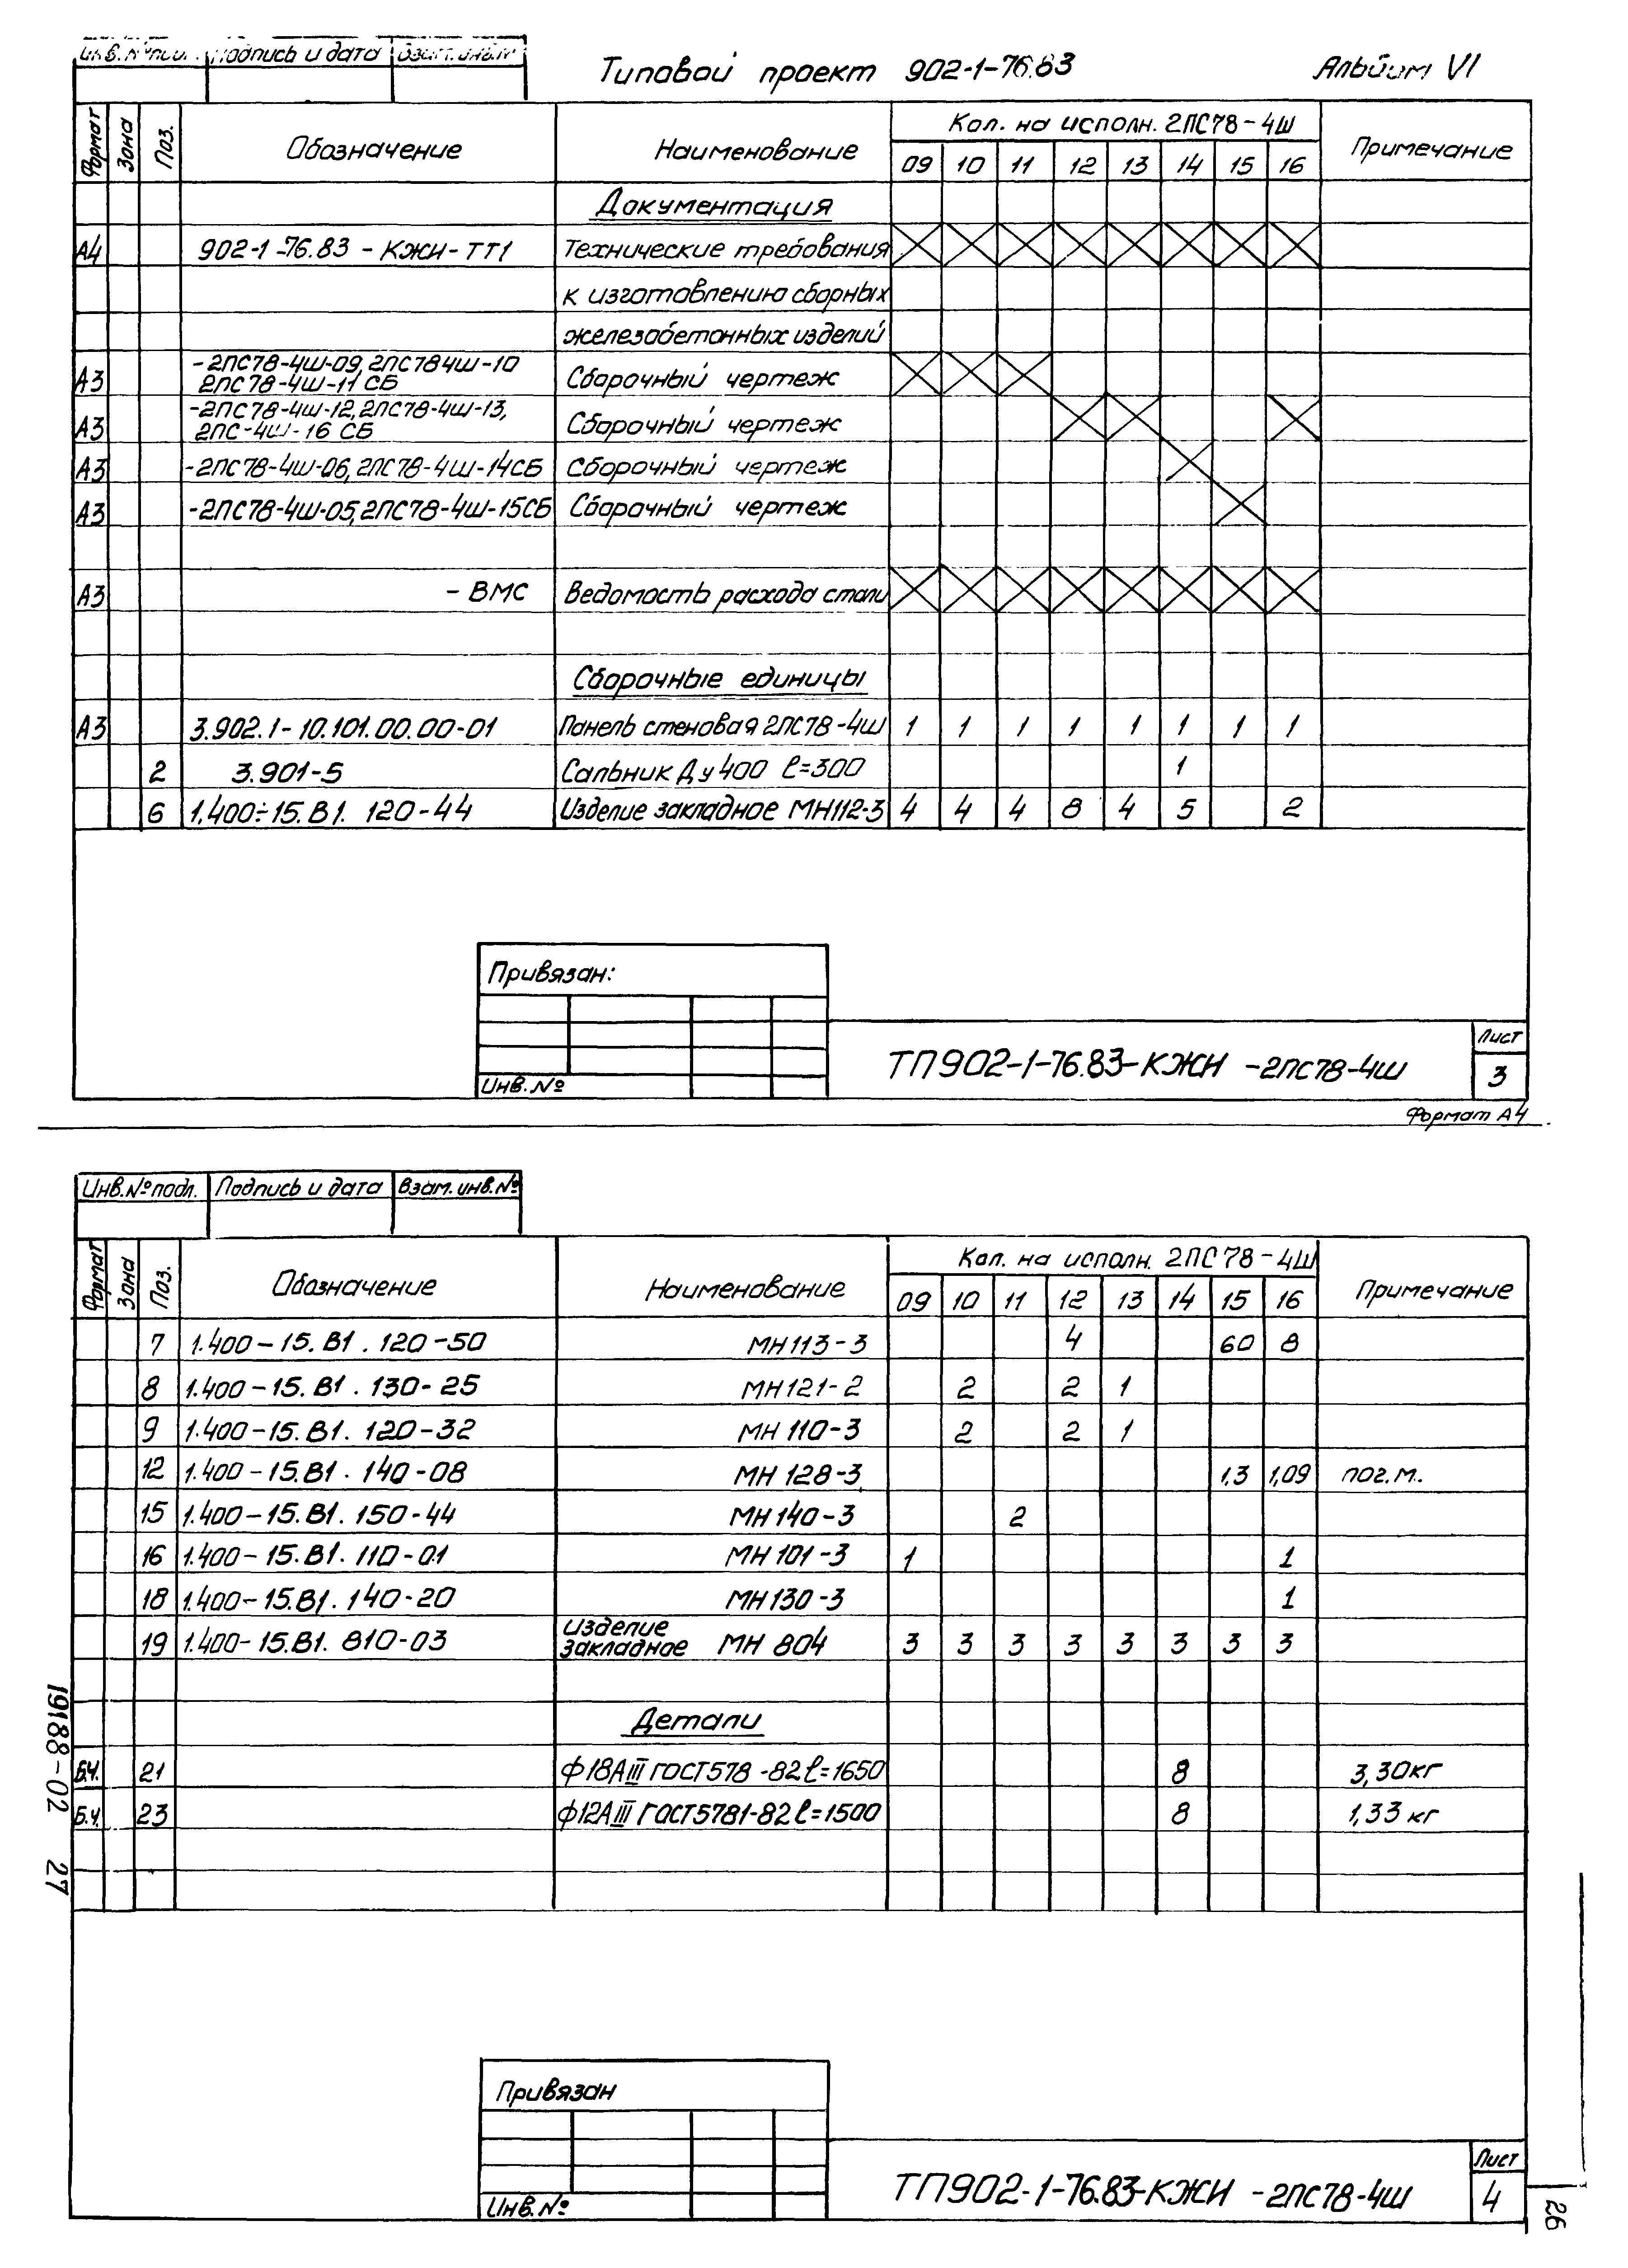 Инв.№подл. Подпись и дата Взам.инв.№
Типовой проект 902-1-76.83 Альбом VI
Формат Зона Поз. Обозначение Наименование Кол. на исполн. 2ПС78-4Ш Примечание
09 10 11 12 13 14 15 16
Документация
А4 902-1-76.83 - КЖИ-ТТ1 Технические требования
к изготовлению сборных
железобетонных изделий
А3 -2ПС78-4Ш-09, 2ПС784Ш-10 Сборочный чертеж
2ПС78-4Ш-11 СБ
А3 -2ПС78-4Ш-12, 2ПС78-4Ш-13, Сборочный чертеж
2ПС-4Ш-16 СБ
А3 -2ПС78-4Ш-06, 2ПС78-4Ш-14СБ Сборочный чертеж
А3 -2ПС78-4Ш-05, 2ПС78-4Ш-15СБ Сборочный чертеж
А3 - ВМС Ведомость расхода стали
Сборочные единицы
А3 3.902.1-10.101.00.00-01 Панель стеновая 2ПС78-4Ш 1 1 1 1 1 1 1 1
2 3.901-5 Сальник Ду400 ℓ=300 1
6 1.400÷15.В1. 120-44 Изделие закладное МН112-3 4 4 4 8 4 5 2
Привязан:
Инв.№
ТП902-1-76.83-КЖИ -2ПС78-4Ш
Лист
3
Формат А4
Инв.№подл. Подпись и дата Взам.инв.№
Формат Зона Поз. Обозначение Наименование Кол. на исполн. 2ПС78-4Ш Примечание
09 10 11 12 13 14 15 16
7 1.400-15.В1.120-50 МН113-3 4 60 8
8 1.400-15.В1.130-25 МН121-2 2 2 1
9 1.400-15.В1.120-32 МН110-3 2 2 1
12 1.400-15.В1.140-08 МН128-3 1,3 1,09 пог.м.
15 1.400-15.В1.150-44 МН140-3 2
16 1.400-15.В1.110-01 МН101-3 1 1
18 1.400-15.В1.140-20 МН130-3 1
19 1.400-15.В1.810-03 изделие закладное МН 804 3 3 3 3 3 3 3 3
Детали
Б.Ч. 21 ф18АIII ГОСТ578-82 ℓ=1650 8 3,30кг
Б.Ч. 23 ф12АIII ГОСТ5781-82 ℓ=1500 8 1,33 кг
19188-02 27
Привязан
Инв.№
ТП902-1-76.83-КЖИ -2ПС78-4Ш
Лист
4
26